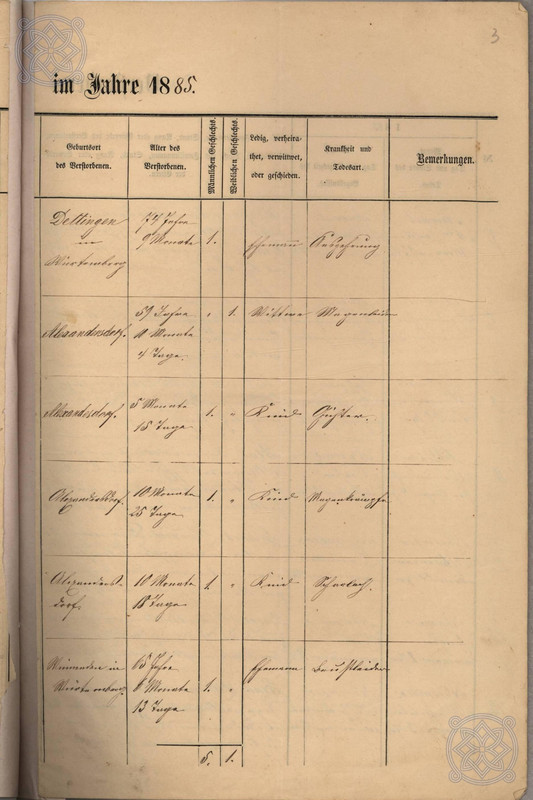 3
im Jahre 1885.
Geburtsort
des Verstorbenen.
Alter des
Verstorbenen.
Männlichen Geschlechts.
Weiblichen Geschlechts.
Ledig, verheira-
thet, verwittwet,
oder geschieden.
Krankheit und
Todesart.
Bemerkungen.
Dettingen
in
Würtemberg
74 Jahre
9 Monate
1.
Ehemann
Auszehrung
Alexandersdorf.
59 Jahre
Monate
4 Tage.
1.
Wittwe
Magenleiden
Alexandersdorf.
5 Monate
15 Tage
1.
Kind
Alexandersdorf.
10 Monate
25 Tage
1.
Kind
Magenkrämpfe
Alexanders-
dorf.
10 Monate
18 Tage
1.
Kind
Scharlach.
Winnenden in
Würtemberg.
65 Jahre
8 Monate
13 Tage
1.
Ehemann
Brustleiden
5. 1.